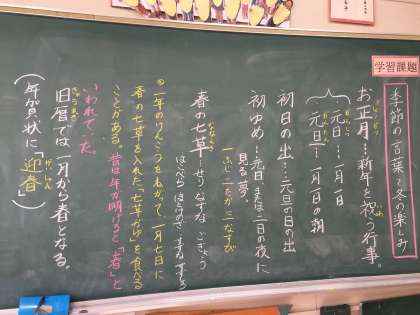 学習課題
季節の言葉 冬の楽しみ
お正月…新年を祝う行事。
元日…一月一日
元旦…一月一日の朝
初日の出…元旦の日の出
初ゆめ…元日または二日の夜に
見る夢。
一ふじ 二たか 三なすび
春の七草 せり なずな ごぎょう
はこべら ほとけのざ すずな すずしろ
◎一年のけんこうをねがって、一月七日に
春の七草を入れた「七草がゆ」を食べる
ことがある。昔は年が明けると「春」と
いわれて
旧暦では一月から春となる。
(年賀状に「迎春」)